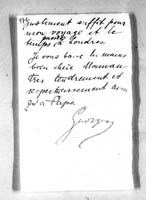 justement suffit pour
mon voyage et le
temps à Londres.
Je vous baise les mains
bien chère Maman
très tendrement et
respectueusement ainsi
qu'à Papa
Georges